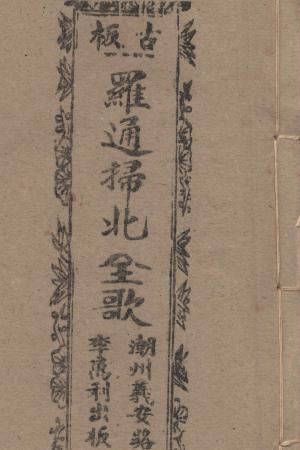 古板
羅通掃北全歌
潮州義安路
李萬利出板